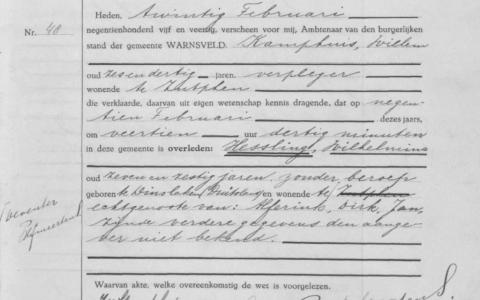 Heden, twintig Februari
negentienhonderd vijf en veertig, verscheen voor mij, Ambtenaar van den burgerlijken
Nr. 40
stand der gemeente WARNSVELD. Kamphuis, Willem
oud zesendertig jaren, verpleger
wonende te Zutphen
die verklaarde, daarvan uit eigen wetenschap kennis dragende, dat op negen-
tien Februari dezes jaars,
om veertien uur dertig minuten
in deze gemeente is overleden: Hessling, Wilhelmina
oud zeven en zestig jaren, zonder beroep
geboren te Dinslaken, en wonende te Zutphen
Deventer
echtgenoote van: Aferink, Dirk, Jan,
zijnde verdere gegevens den aange-
ver niet bekend.
Waarvan akte, welke overeenkomstig de wet is voorgelezen.